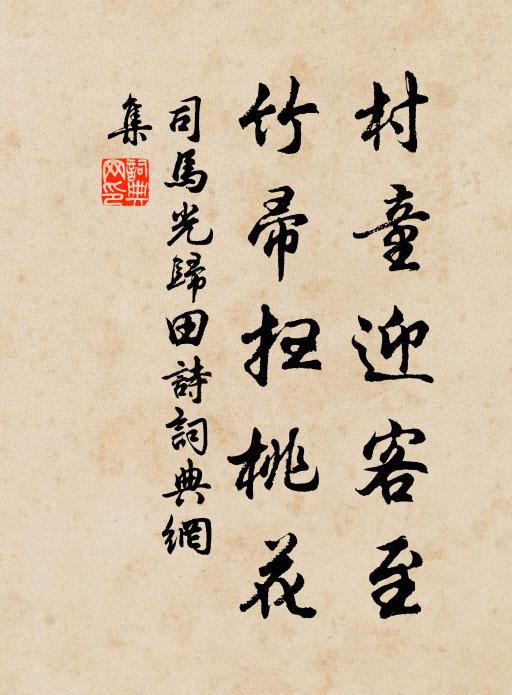 村童迎客至
竹帚扫桃花
司馬光歸田詩詞典網
集
詞典網印